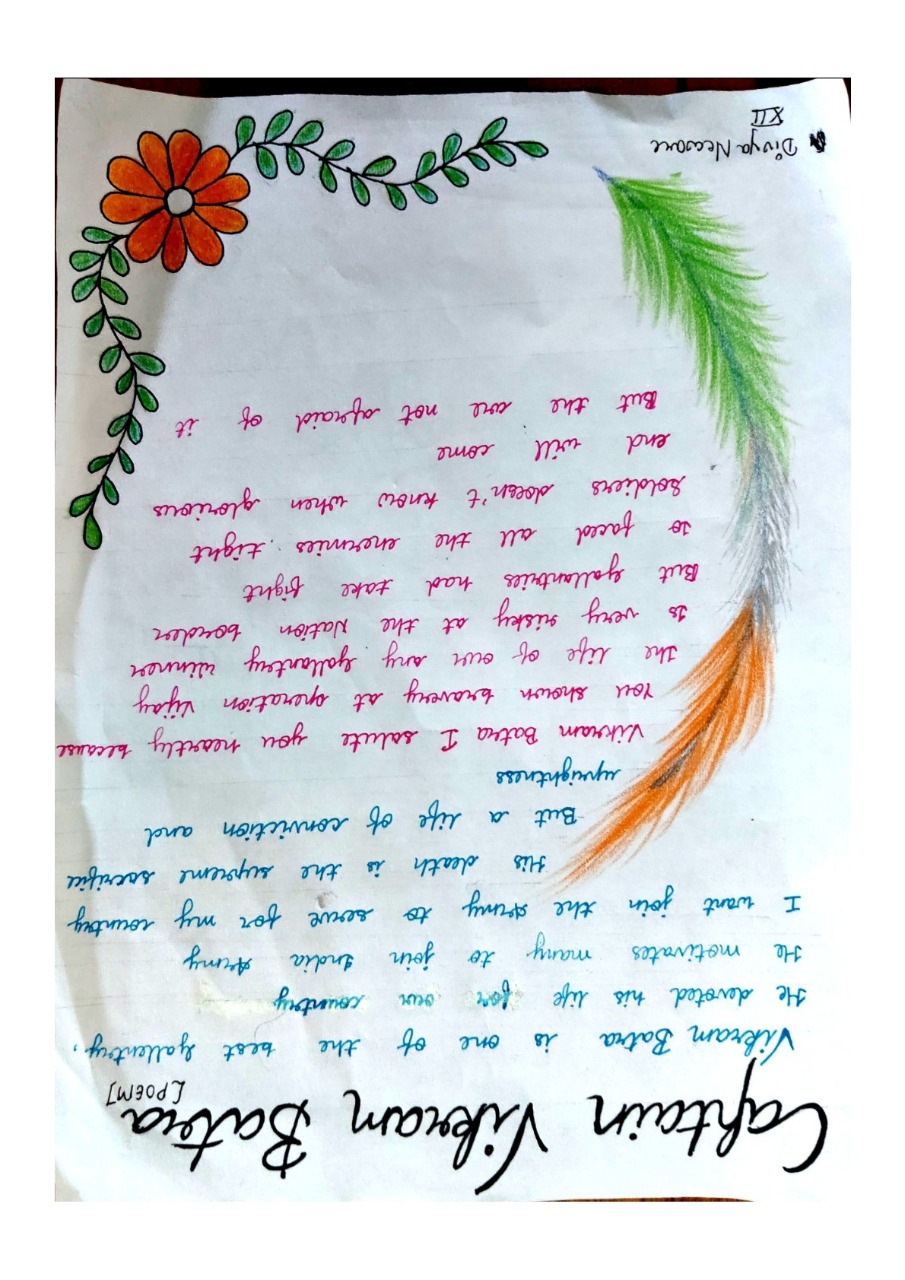 Captain Vikram Batra
[POEM]
Vikram Batra is one of the best Gallentry,
He devoted his life for our country
He motivates many to join India Army
I want join the Army to serve for my country
His death is the supreme sacrifice
But a life of conviction and
uprightness
Vikram Batra I salute you heartly because
You shown bravery at operation Vijay
The life of our any gallantry winner
Is very risky at the Nation boarder
But gallantries had take fight
To faced all the enermies tight.
Soldiers doesn't know when glorious
end will come
But the are not afraid of it
Divya Neware
XII